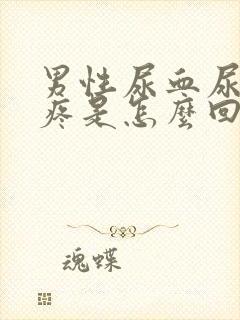 男性尿血尿
疼是怎麼回
魂蝶